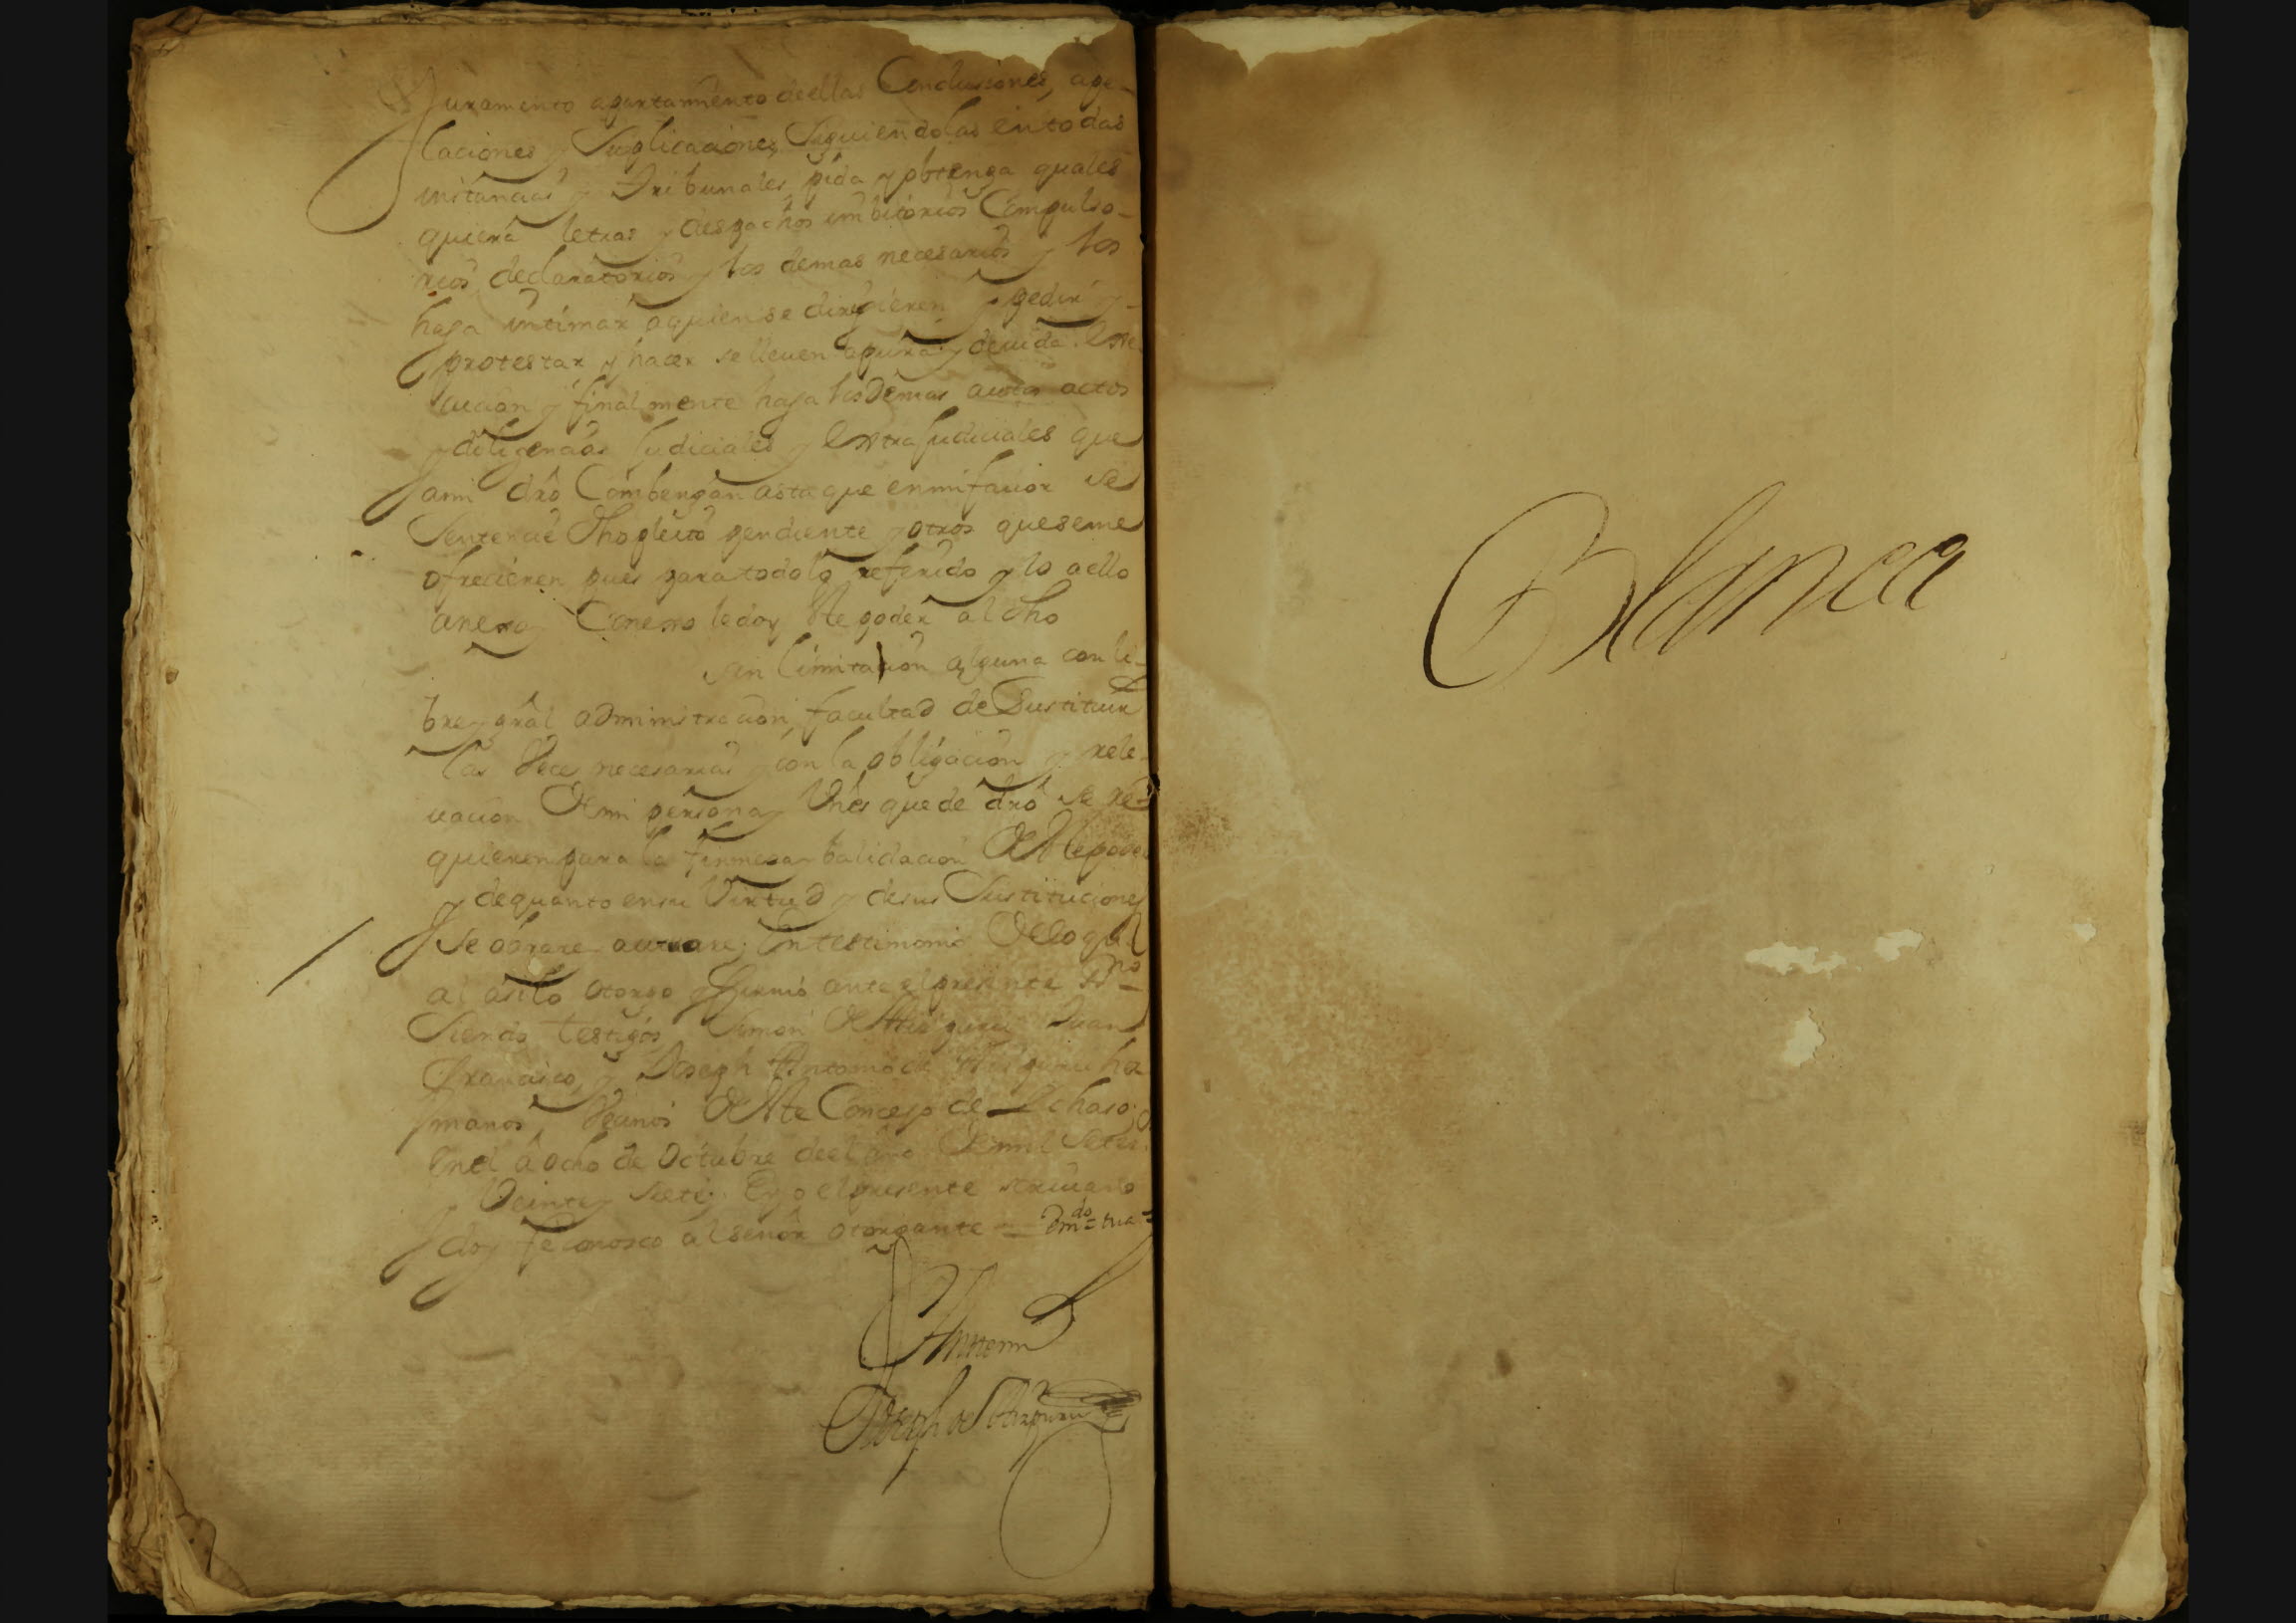 Juramento apartamento deellas Conclusiones, ape-
laciones y Suplicaciones Siguiendolas en todas
instancias y Tribunales pida y obtenga quales
quiera letras y despachos imbitorios Compulso-
rios declaratorios y los demas necesarios y los
haga intimar aquien se dirigieren y pedir y
protestar y hacer se lleuen apura y deuida Exe
cucion y finalmente haga los Demas autos actos
y diligencias Judiciales y Extra Judiciales que
ami dró Combengan asta que enmifauor se
Sentencie Dho pleito pendiente y otros queseme
ofrecieren pues para todo lo referido y lo aello
anexo y Conexo le doy Ste poder al Dho
sin limitacion alguna con li-
bre y gral administracion facultad de Sustituir
las Vece necesarias y con la obligacion y rele-
uacion De mi persona y Vnes que de dró se re-
quieren para la firmeza balidacion De Ste poder
y dequanto ensu Virtud y desus Sustituciones
Se obrare autuare; Entestimonio Delo qual
al asi lo otorgo y firmó ante el presente sno
Siendo testigos Simon De Juan
Francisco y Joseph Antonio de her
manos, Vecinos De Ste Concejo de Ichaso;
Enel a ocho de Octubre deel año De mil Setez.
y Veinte y Siete; Eyo el presente scriuano
doy fe conosco al señor otorgante = Emdo = tua =
Ante mi
Joseph de
Blanca